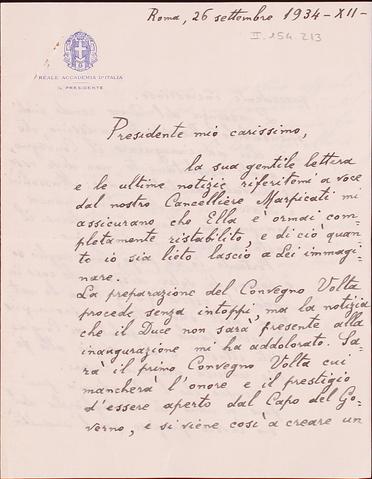 Roma, 26 settembre 1934-XII-
I.154.213
REALE ACCADEMIA D'ITALIA
IL PRESIDENTE
Presidente mio carissimo,
la sua gentile lettera
e le ultime notizie riferitemi a voce
dal nostro Cancelliere Marpicati mi
assicurano che Ella è ormai com-
pletamente ristabilito, e di ciò quan
te io sia lieto lascio a Lei immagi-
nare.
La preparazione del Convegno Volta
procede senza intoppi, ma la notizia
che il Duce non sarà presente alla
inaugurazione mi ha addolorato. Sa-
rà il primo Convegno Volta cui
mancherà l'onore e il prestigio
d'essere aperto dal Capo del Go-
verno, e si viene così a creare un